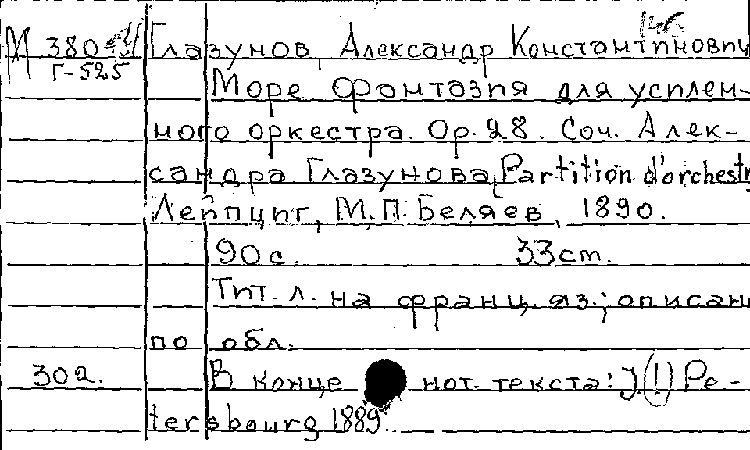 М 380
Г-525
Глазунов, Александр Константинович
Море фантазия для усилен-
ного оркестра. Ор. 28. Соч. Алек-
сандра Глазунова, Partition d'orchestr
Лейпциг, М. П. Беляев, 1890.
90 с. 33 cm.
Тит. л. на франц. яз.; описан
по обл.
302.
В конце нот. текста: J. (!) Pe-
tersbourg 1889.